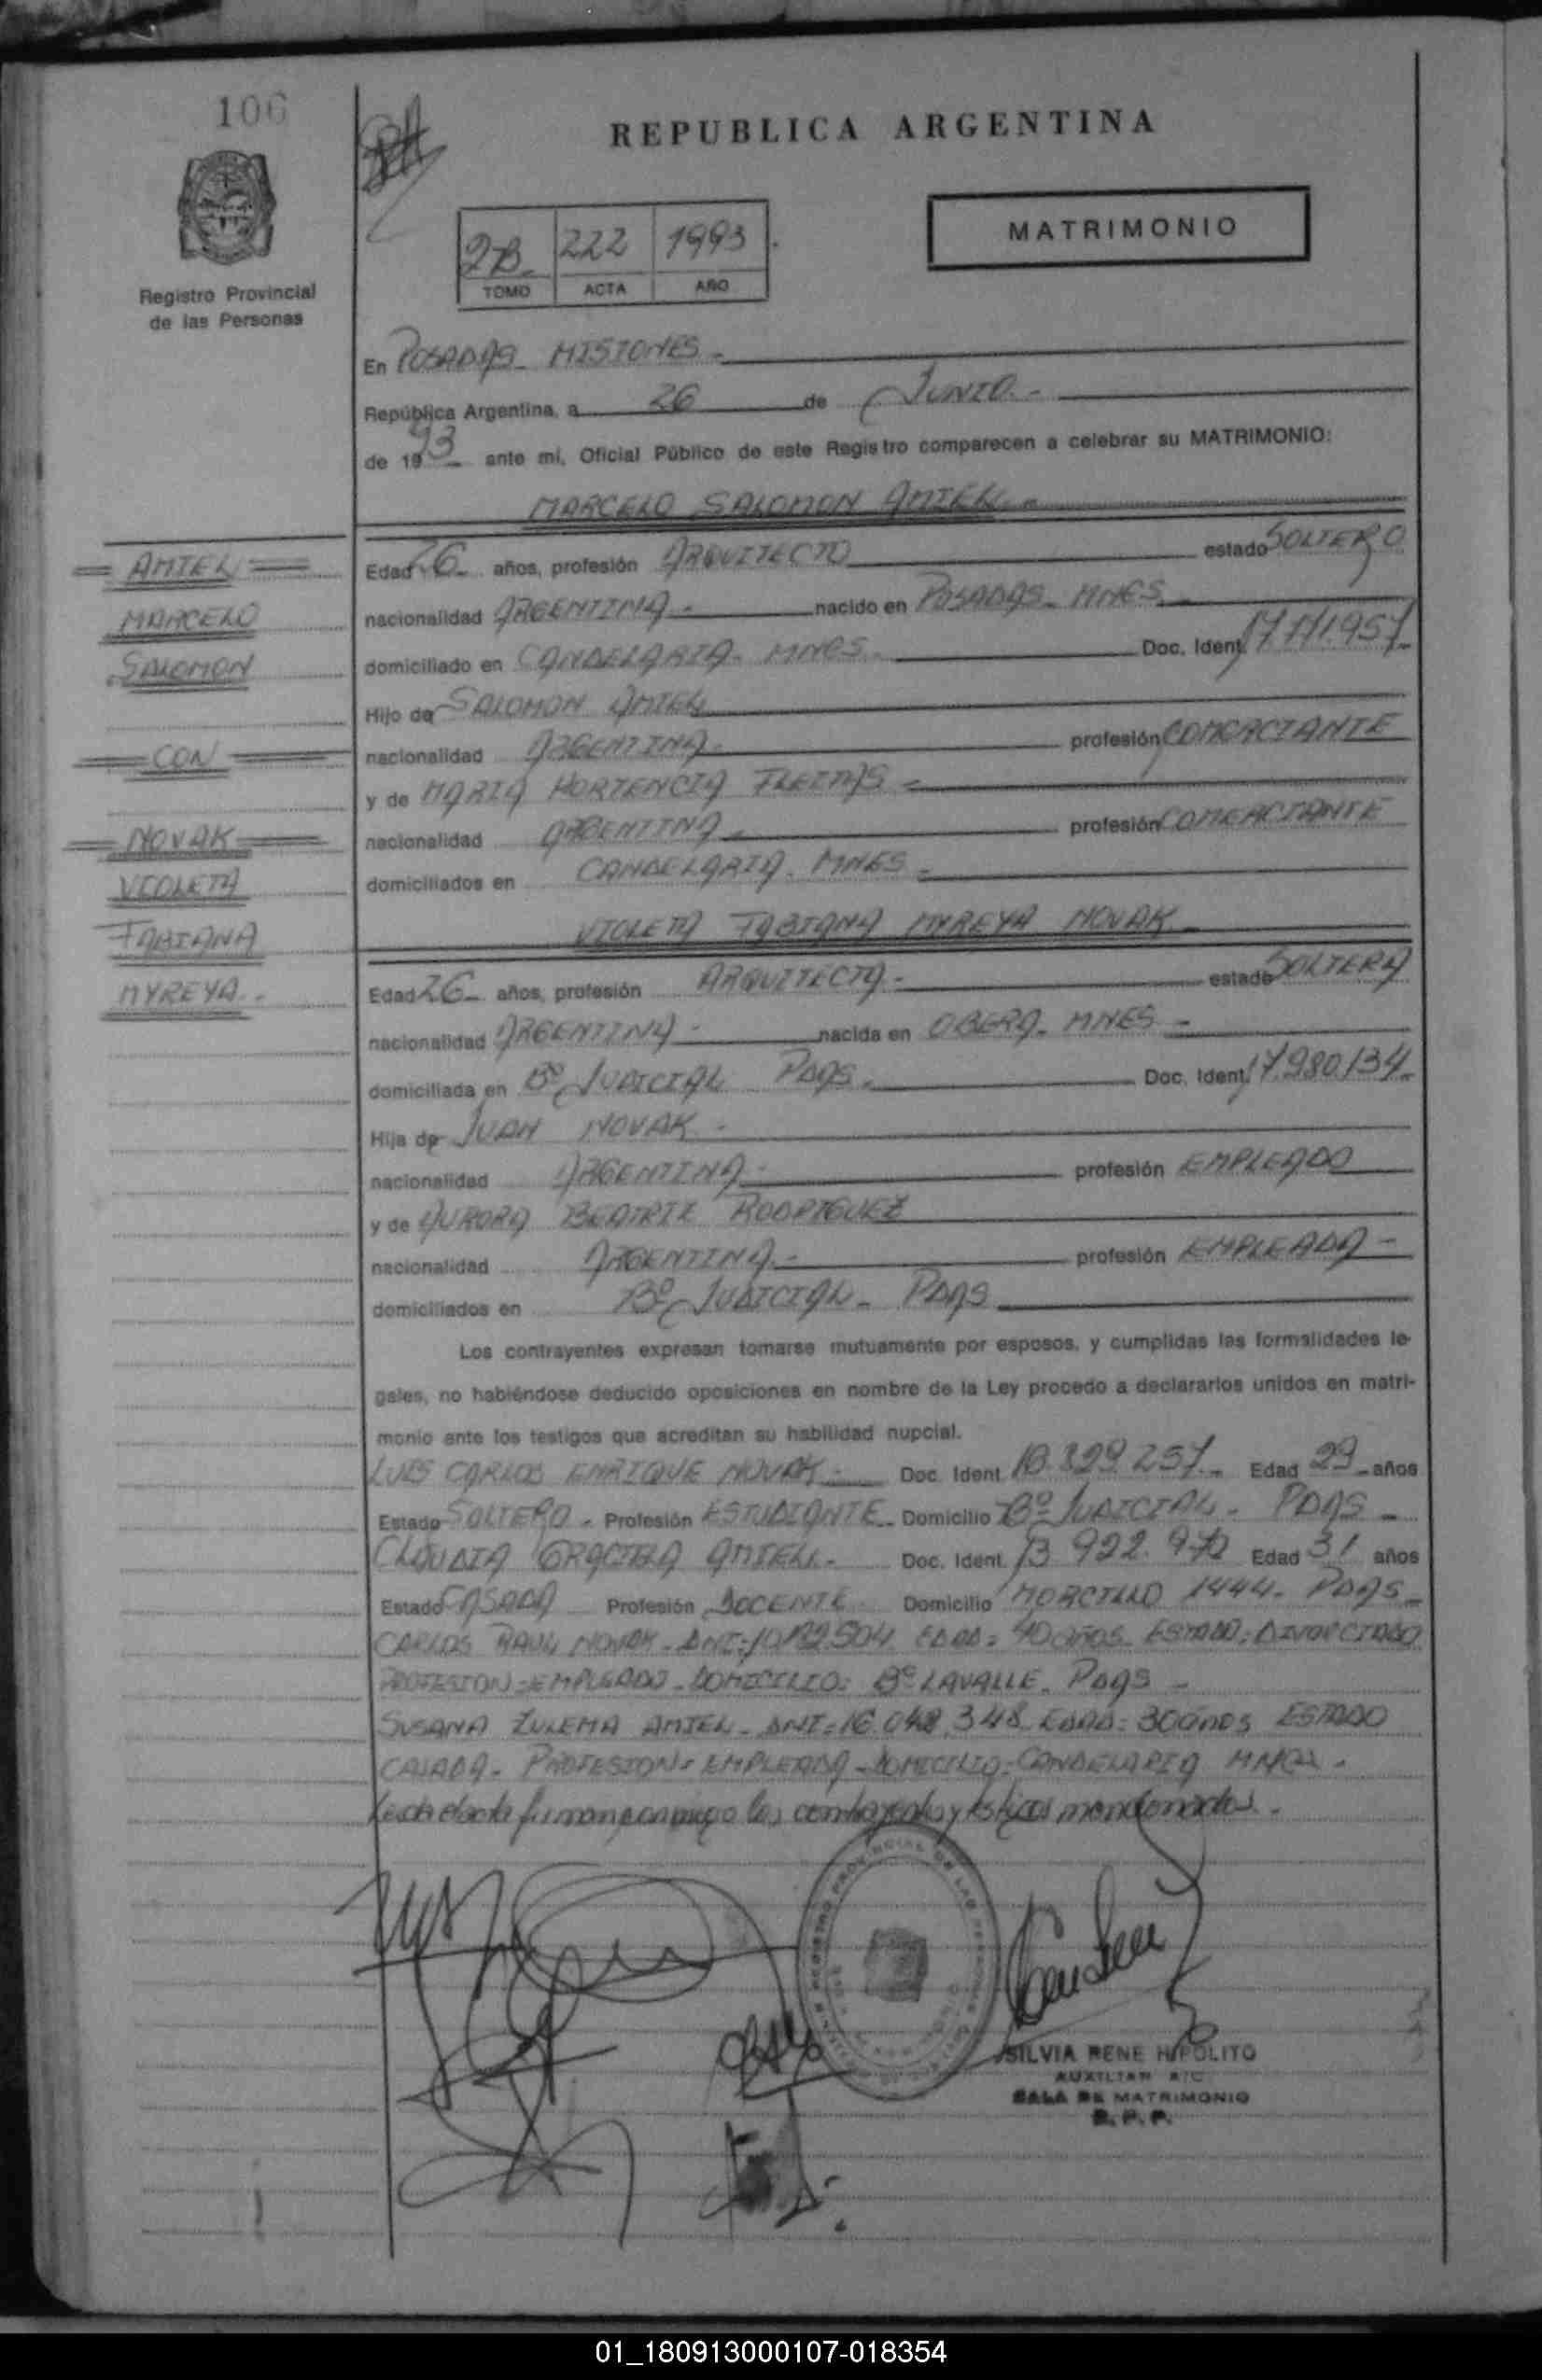 106
REPUBLICA ARGENTINA
MATRIMONIO
2B 222 1993
TOMO ACTA AÑO
Registro Provincial
de las Personas
En POSADAS - MISIONES -
República Argentina, a 26 de JUNIO.-
de 1993 ante mí, Oficial Público de este Registro comparecen a celebrar su MATRIMONIO:
MARCELO SALOMON AMIEL -
AMIEL
MARCELO
SALOMON
CON
NOVAK
VIOLETA
FABIANA
MYREYA.-
Edad 26 años, profesión ARQUITECTO estado SOLTERO
nacionalidad ARGENTINA - nacido en POSADAS - MNES
domiciliado en CANDELARIA - MNES. Doc. Ident.
Hijo de SALOMON AMIEL
nacionalidad ARGENTINA - profesión COMERCIANTE
y de MARIA HORTENCIA FLEITAS -
nacionalidad ARGENTINA - profesión COMERCIANTE
domiciliados en CANDELARIA - MNES -
VIOLETA FABIANA MYREYA NOVAK
Edad 26 años, profesión ARQUITECTA - estado SOLTERA
nacionalidad ARGENTINA - nacida en OBERA - MNES -
domiciliada en Bº JUDICIAL PDAS. Doc. Ident. 17.980.134
Hija de JUAN NOVAK -
nacionalidad ARGENTINA - profesión EMPLEADO
y de AURORA BEATRIZ RODRIGUEZ
nacionalidad ARGENTINA - profesión EMPLEADA -
domiciliados en Bº JUDICIAL - PDAS
Los contrayentes expresan tomarse mutuamente por esposos, y cumplidas las formalidades le-
gales, no habiéndose deducido oposiciones en nombre de la Ley procedo a declararlos unidos en matri-
monio ante los testigos que acreditan su habilidad nupcial.
LUIS CARLOS ENRIQUE NOVAK - Doc. Ident. Edad 29 años
Estado SOLTERO - Profesión ESTUDIANTE - Domicilio Bº JUDICIAL - PDAS -
CLAUDIA GRACIELA AMIEL - Doc. Ident. Edad 31 años
Estado CASADA Profesión DOCENTE Domicilio MORCILLO 1444 - PDAS -
CARLOS RAUL NOVAK - DNI: EDAD: 40 años ESTADO: DIVORCIADO
PROFESION: EMPLEADO - DOMICILIO: Bº LAVALLE - PDAS -
SUSANA ZULEMA AMIEL - DNI: 16.048.348 EDAD: 30 años ESTADO
CASADA - PROFESION: EMPLEADA - DOMICILIO: CANDELARIA MNES -
firman conmigo los contrayentes y testigos mencionados.-
SILVIA RENE HIPOLITO
AUXILIAR
SALA DE MATRIMONIO
R. P. P.
01_180913000107-018354